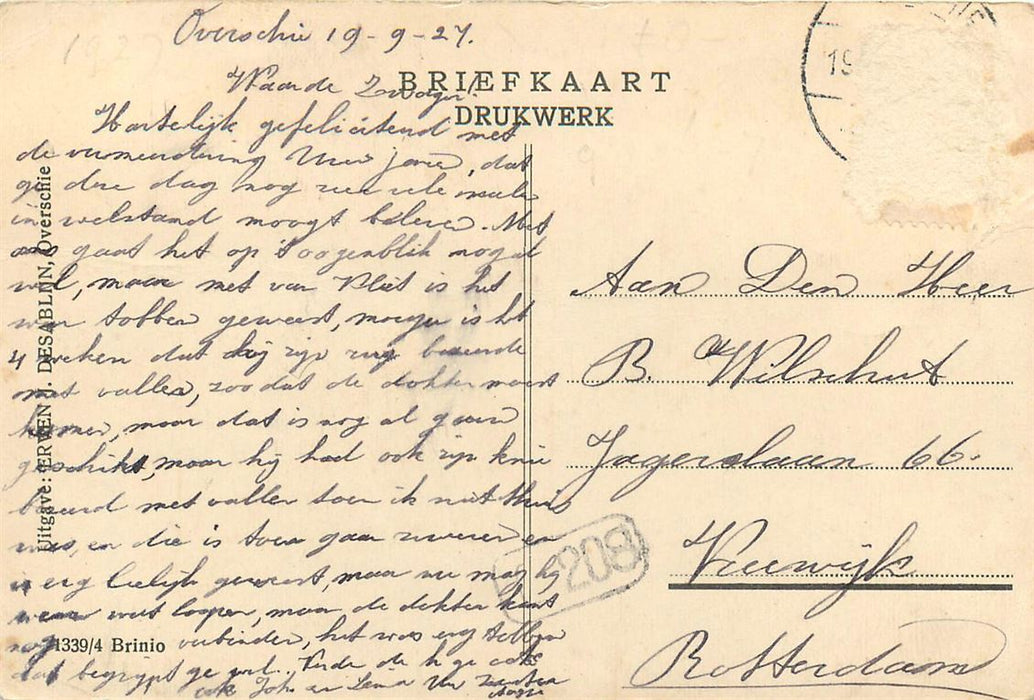 Overschie 19-9-27.
Waarde Zwager!
BRIEFKAART
DRUKWERK
Hartelijk gefeliciteerd met
de vermeerdering Uwer jaren, dat
ge deze dag nog zeer vele malen
in welstand moogt beleven. Met
ons gaat het op 't oogenblik nogal
wel, maar met van Vliet is het
weer tobben geweest, morgen is het
4 weken dat hij zijn rug bezeerde
met vallen, zoodat de dokter moest
komen, maar dat is nog al gauw
geschikt, maar hij had ook zijn knie
bezeerd met vallen toen ik niet thuis
was, en die is toen gaan zweren en
is erg leelijk geweest, maar nu mag hij
weer wat loopen, maar de dokter komt
nog verbinden, het was erg tobben
dat begrijpt ge wel. Verder de h. ge ook
ook Joh en Lena Uw
Uitgave: ERWEN J. DESABLIN, Overschie
1339/4 Brinio
19
208
Aan Den Heer
B. Wilschut
Jagerslaan 66.
Vreewijk
Rotterdam